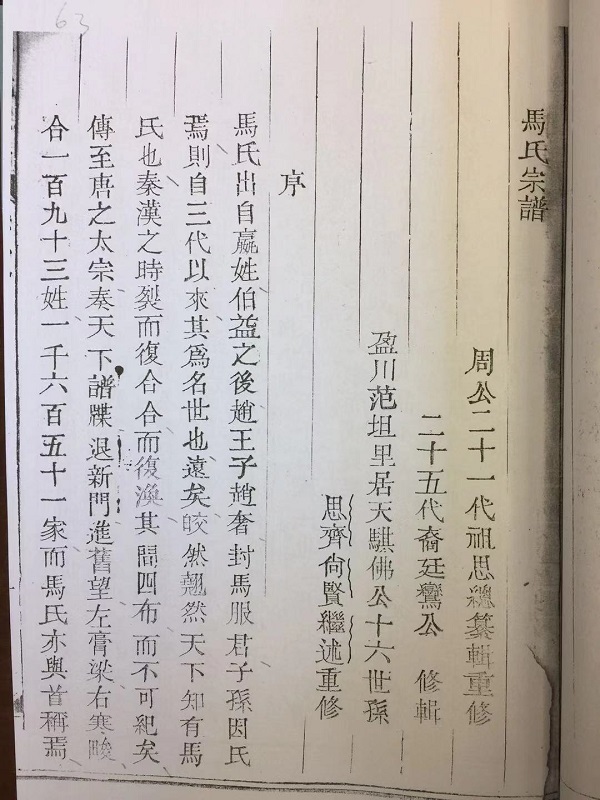 63
馬氏宗譜
周公二十一代祖思聰纂輯重修
二十五代裔廷鸞公 修輯
盈川范坦里居天騏佛公十六世孫
思齊尙賢繼述重修
序
馬氏出自嬴姓伯益之後趙王子趙奢封馬服君子孫因氏
焉則自三代以來其爲名世也遠矣皎然翹然天下知有馬
氏也秦漢之時裂而復合合而復渙其間四布而不可紀矣
傳至唐之太宗奏天下譜牒退新門進舊望左膏梁右寒畯
合一百九十三姓一千六百五十一家而馬氏亦與首稱焉